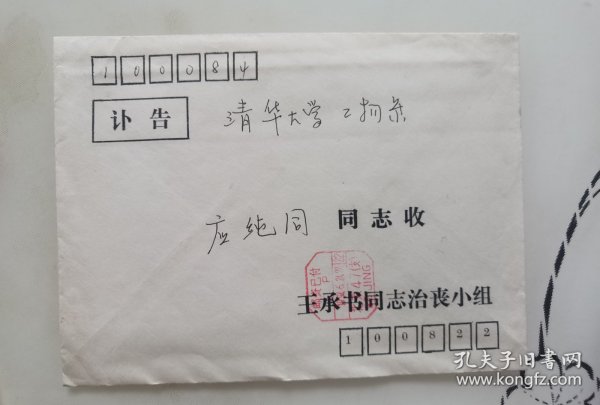 100084
讣告
清华大学工物系
应纯同 同志收
王承书同志治丧小组
100822
孔夫子旧书网
www.kongfz.com